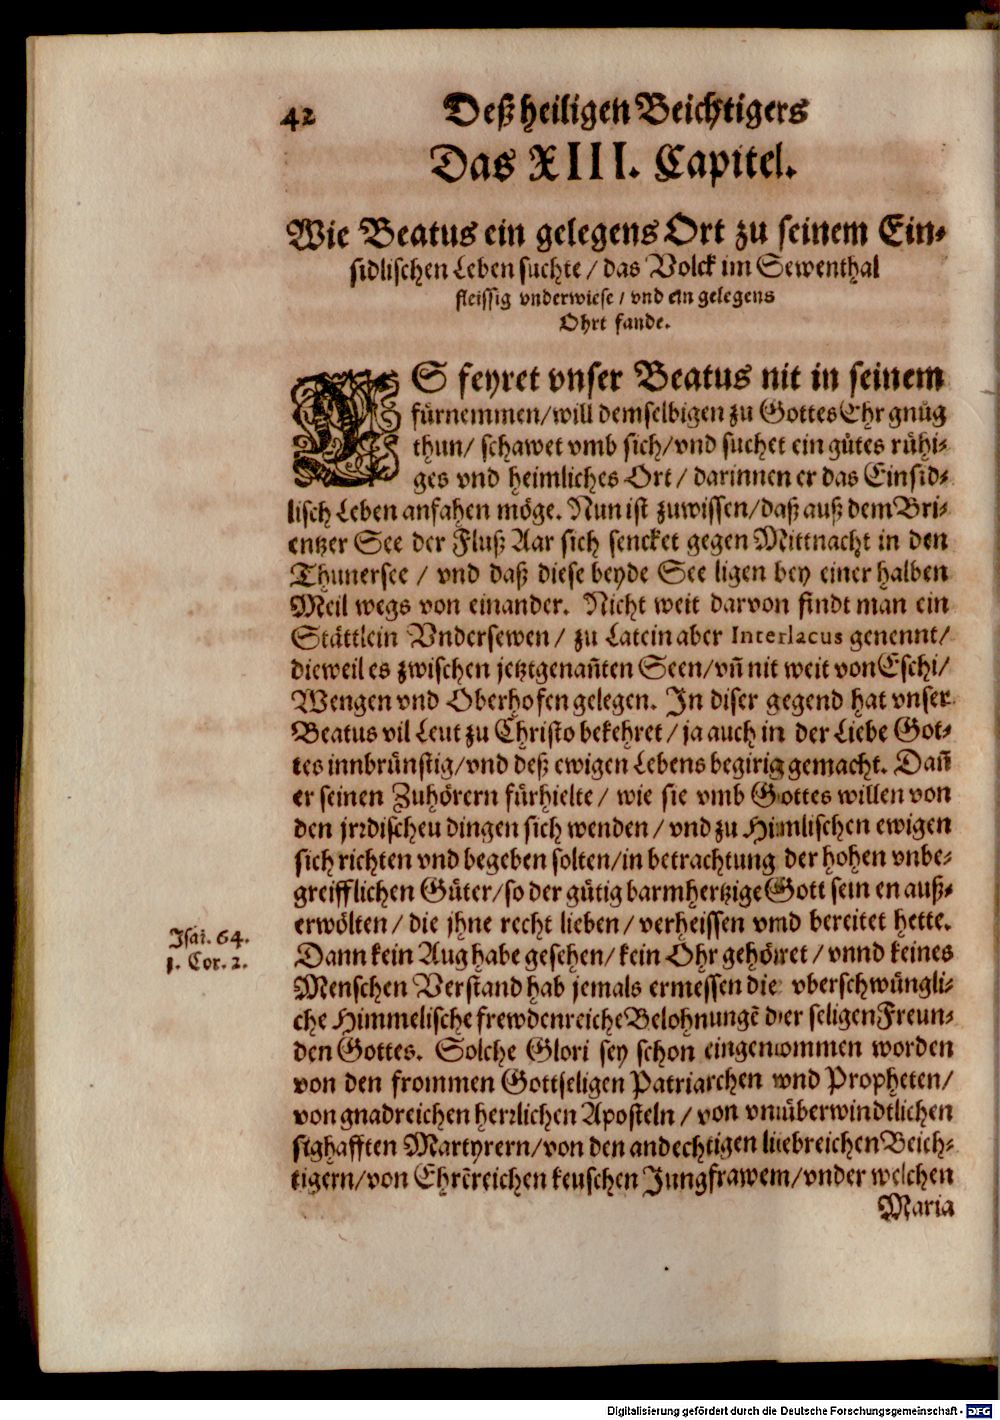 42 Deß heiligen Beichtigers
Das XIII. Capitel.
Wie Beatus ein gelegens Ort zu seinem Ein-
sidlischen Leben suchte / das Volck im Sewenthal
fleissig vnderwiese / vnd ein gelegens
Ohrt fande.
ES feyret vnser Beatus nit in seinem
fürnemmen/will demselbigen zu Gottes Ehr gnůg
thun/ schawet vmb sich/vnd suchet ein gůtes rühi-
ges vnd heimliches Ort / darinnen er das Einsid-
lisch Leben anfahen möge. Nun ist zuwissen/daß auß dem Bri-
entzer See der Fluß Aar sich sencket gegen Mittnacht in den
Thunersee / vnd daß diese beyde See ligen bey einer halben
Meil wegs von einander. Nicht weit darvon findt man ein
Stättlein Vndersewen/ zu Latein aber Interlacus genennt/
dieweil es zwischen jetztgenañten Seen/vñ nit weit von Eschi/
Wengen vnd Oberhofen gelegen. In diser gegend hat vnser
Beatus vil Leut zu Christo bekehret / ja auch in der Liebe Got-
tes innbrünstig/vnd deß ewigen Lebens begirig gemacht. Dañ
er seinen Zuhörern fürhielte / wie sie vmb Gottes willen von
den jrrdischeu dingen sich wenden / vnd zu Himlischen ewigen
sich richten vnd begeben solten/in betrachtung der hohen vnbe-
greifflichen Güter/so der gütig barmhertzige Gott sein en auß-
erwölten / die jhne recht lieben / verheissen vnd bereitet hette.
Isai. 64.
1. Cor. 2.
Dann kein Aug habe gesehen/ kein Ohr gehörret / vnnd keines
Menschen Verstand hab jemals ermessen die vberschwüngli-
che Himmelische frewdenreiche Belohnungẽ der seligen Freun-
den Gottes. Solche Glori sey schon eingenommen worden
von den frommen Gottseligen Patriarchen vnd Propheten/
von gnadreichen herrlichen Aposteln / von vnüberwindtlichen
sighafften Martyrern/von den andechtigen liebreichen Beich-
tigern/von Ehrẽreichen keuschen Jungfrawem/vnder welchen
Maria
Digitalisierung gefördert durch die Deutsche Forschungsgemeinschaft - DFG